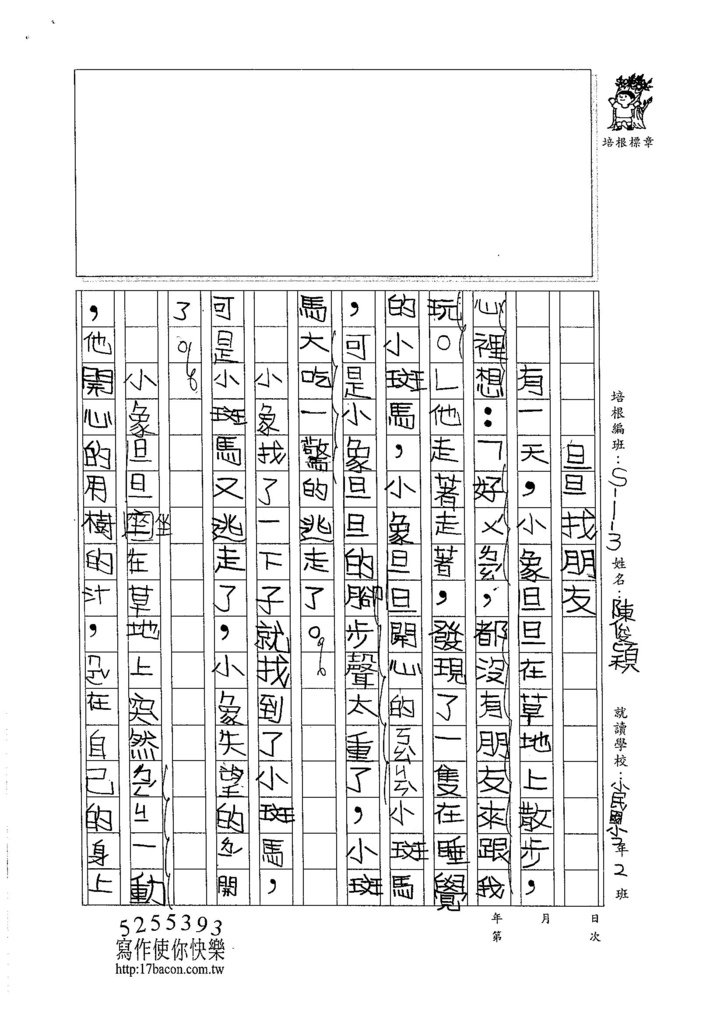 培根標章
培根編班：S-1-3 姓名：陳俊穎 就讀學校：小民國小 年2班
旦旦找朋友
有一天，小象旦旦在草地上散步，
心裡想：「好ㄨㄌㄧㄠˊ，都沒有朋友來跟我
玩。」他走著走著，發現了一隻在睡覺
的小斑馬，小象旦旦開心的ㄎㄠㄐㄧㄣˋ小斑馬
，可是小象旦旦的腳步聲太重了，小斑
馬大吃一驚的逃走了。
小象找了一下子就找到了小斑馬，
可是小斑馬又逃走了，小象失望的ㄌㄧˊ開
了。
小象旦旦坐在草地上突然ㄌㄧㄥˊㄐㄧ一動
，他開心的用樹的汁，ㄊㄨˊ在自己的身上
年 月 日
第 次
5255393
寫作使你快樂
http:17bacon.com.tw